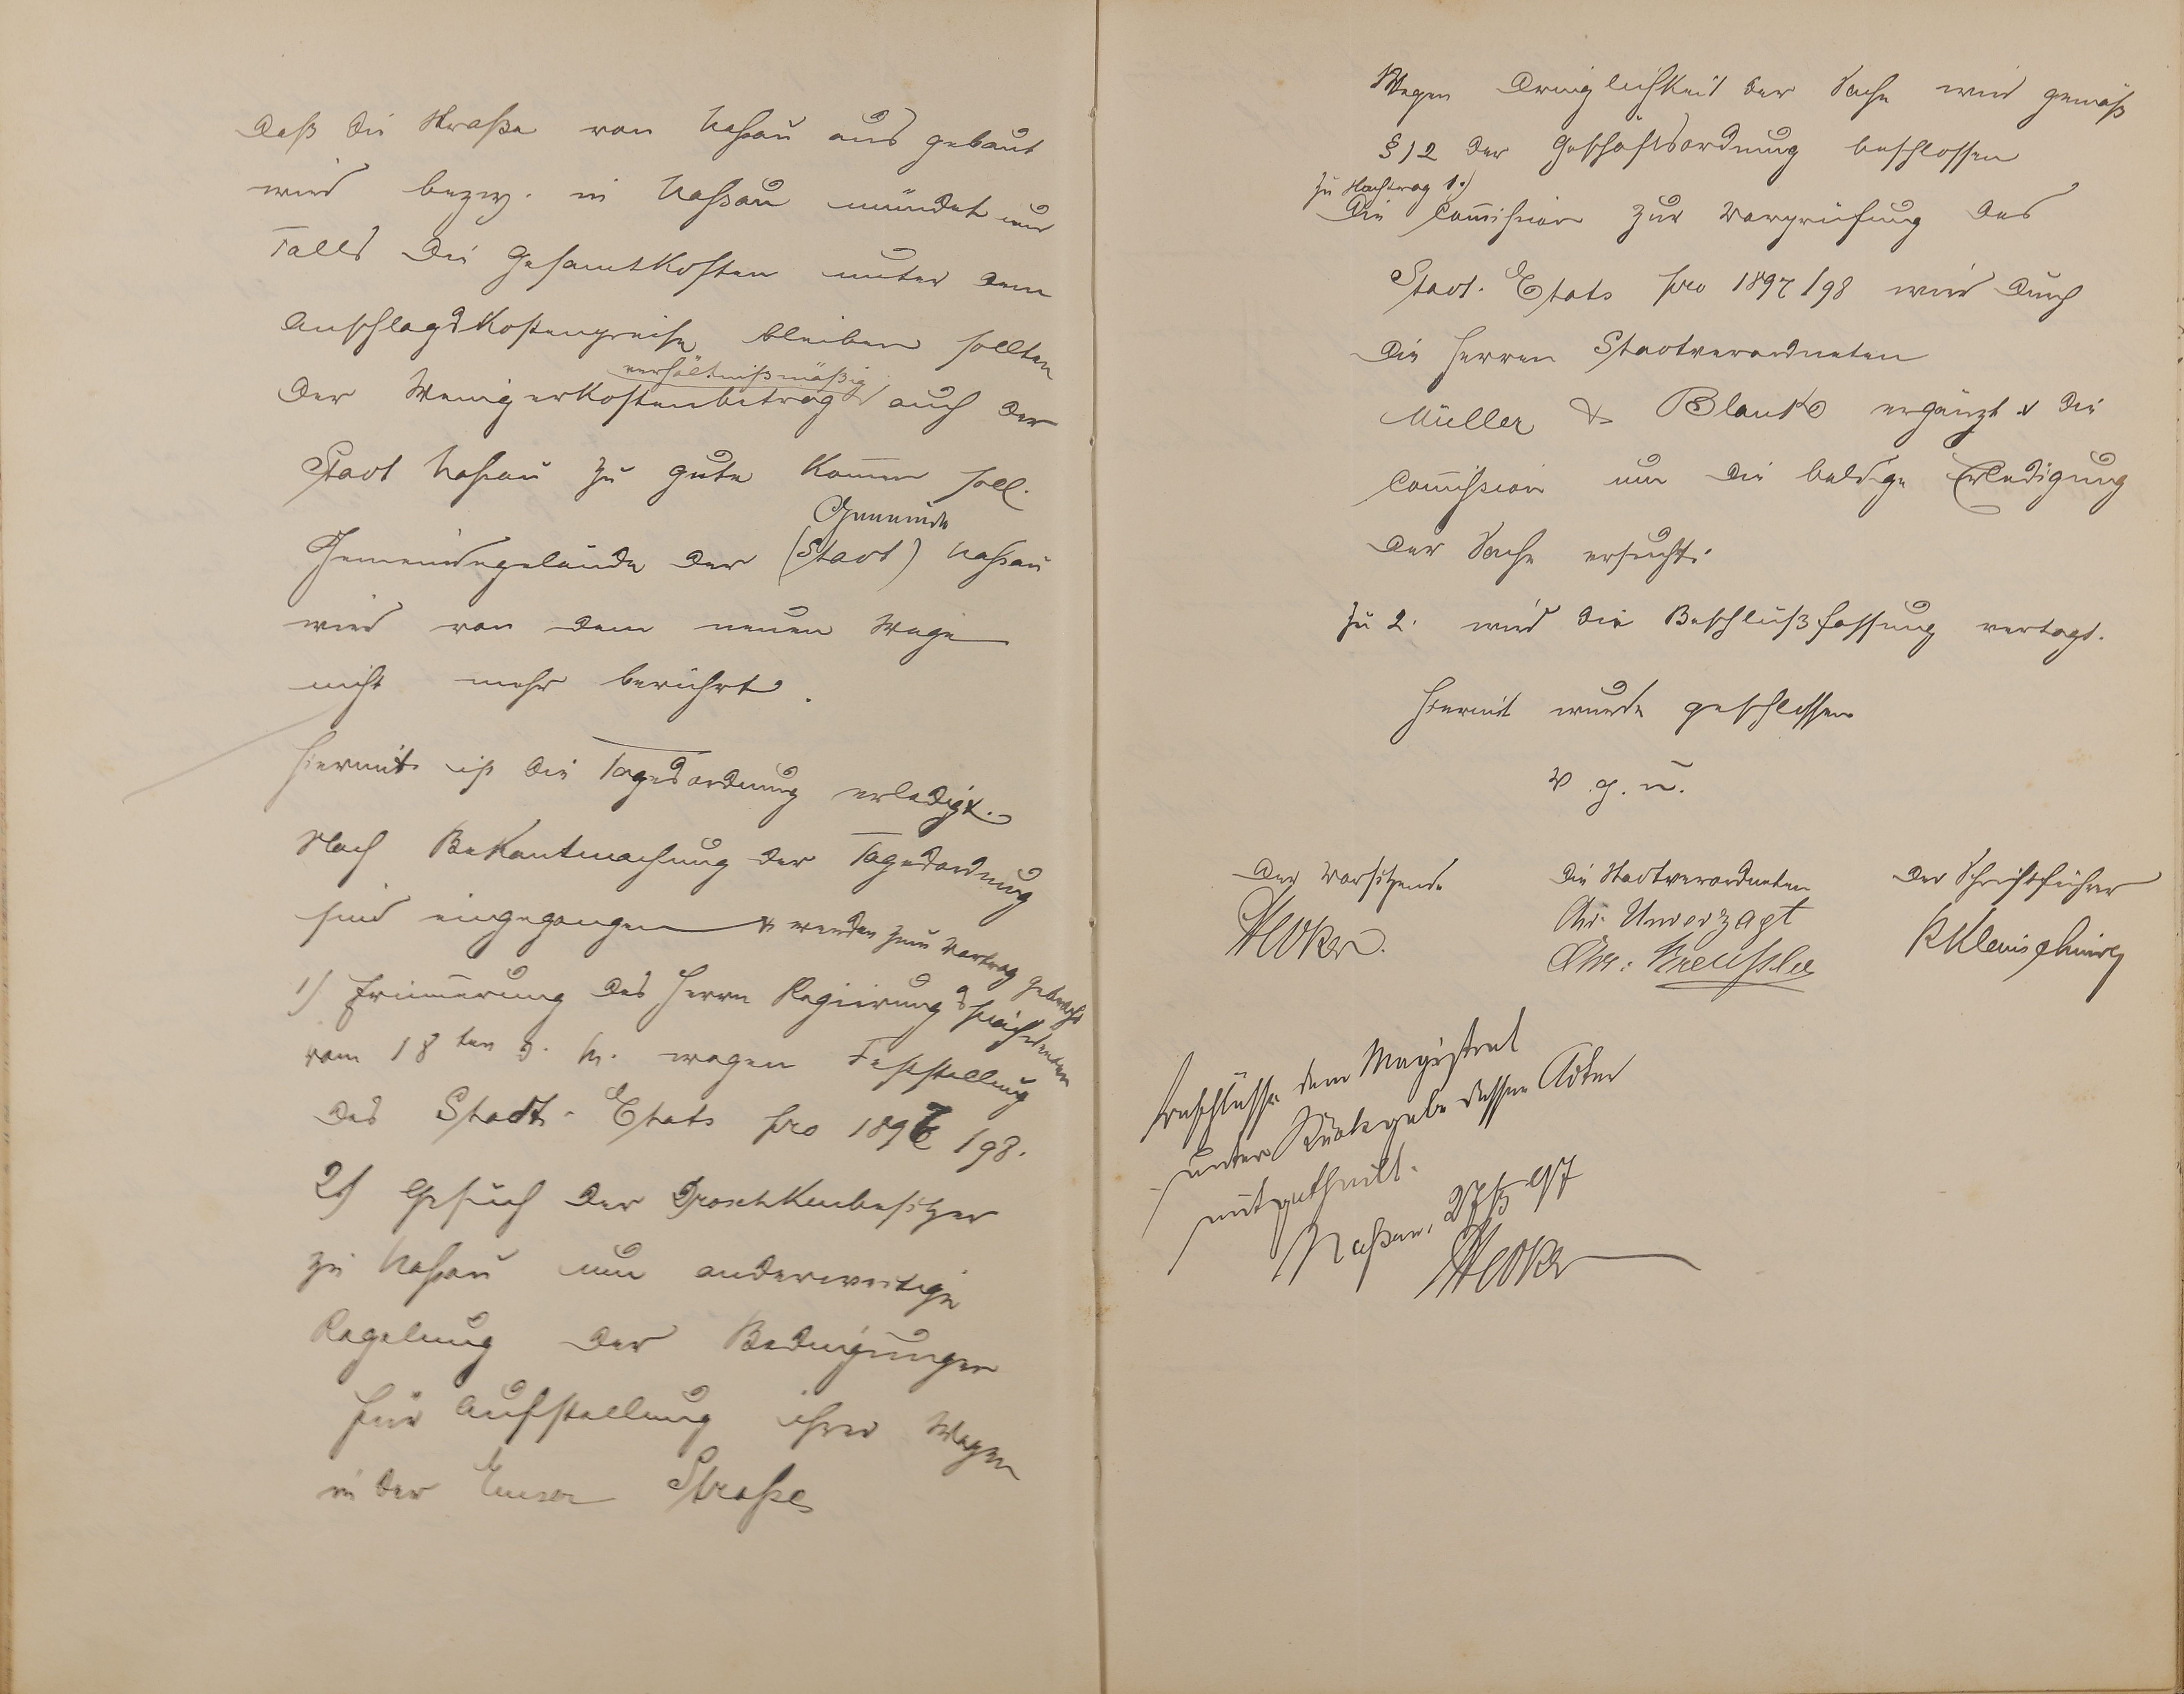 daß die Straße von Nassau aus gebaut
wird bezw. in Nassau mündet und
falls die Gesamtkosten unter dem
Anschlagskostenpreise bleiben sollten
verhältnißmäßig
der Wenigerkostenbetrag auch der
Stadt Nassau zu gute kom̄en soll.
Gemeinde
Gemeindegelände der (Stadt) Nassau
wird von dem neuen Wege
nicht mehr berührt.
Hiermit ist die Tagesordnung erledigt.
Nach Bekantmachung der Tagesordnung
sind eingegangen & werden zum Vortrag gebracht
1) Erin̄erung des Herrn Regierungspräsidenten
vom 18ten d. M. wegen Feststellung
des Stadt-Etats pro 1897/98.
2) Gesuch der Droschkenbesitzer
zu Nassau um anderweitige
Regelung der Bedingungen
für Aufstellung ihrer Wagen
in der Emser Straße
Wegen Dringlichkeit der Sache wird gemäß
§ 12 der Geschäftsordnung beschlossen
Zu Nachtrag 1.)
Die Com̄ission zur Vorprüfung des
Stadt-Etats pro 1897/98 wird durch
die Herren Stadtverordneten
Müller & Blank ergänzt & die
Com̄ission um die baldige Erledigung
der Sache ersucht.
Zu 2. wird die Beschlußfassung vertagt.
Hiermit wurde geschlossen
v. g. u.
Der Vorsitzende
Die Stadtverordneten
Der Schriftführer
Chr. Unverzagt
Chr. Kreussler
Beschlüsse dem Magistrat
unter Rückgabe dessen Akten
mitgetheilt.
Nassau, 27/3 97